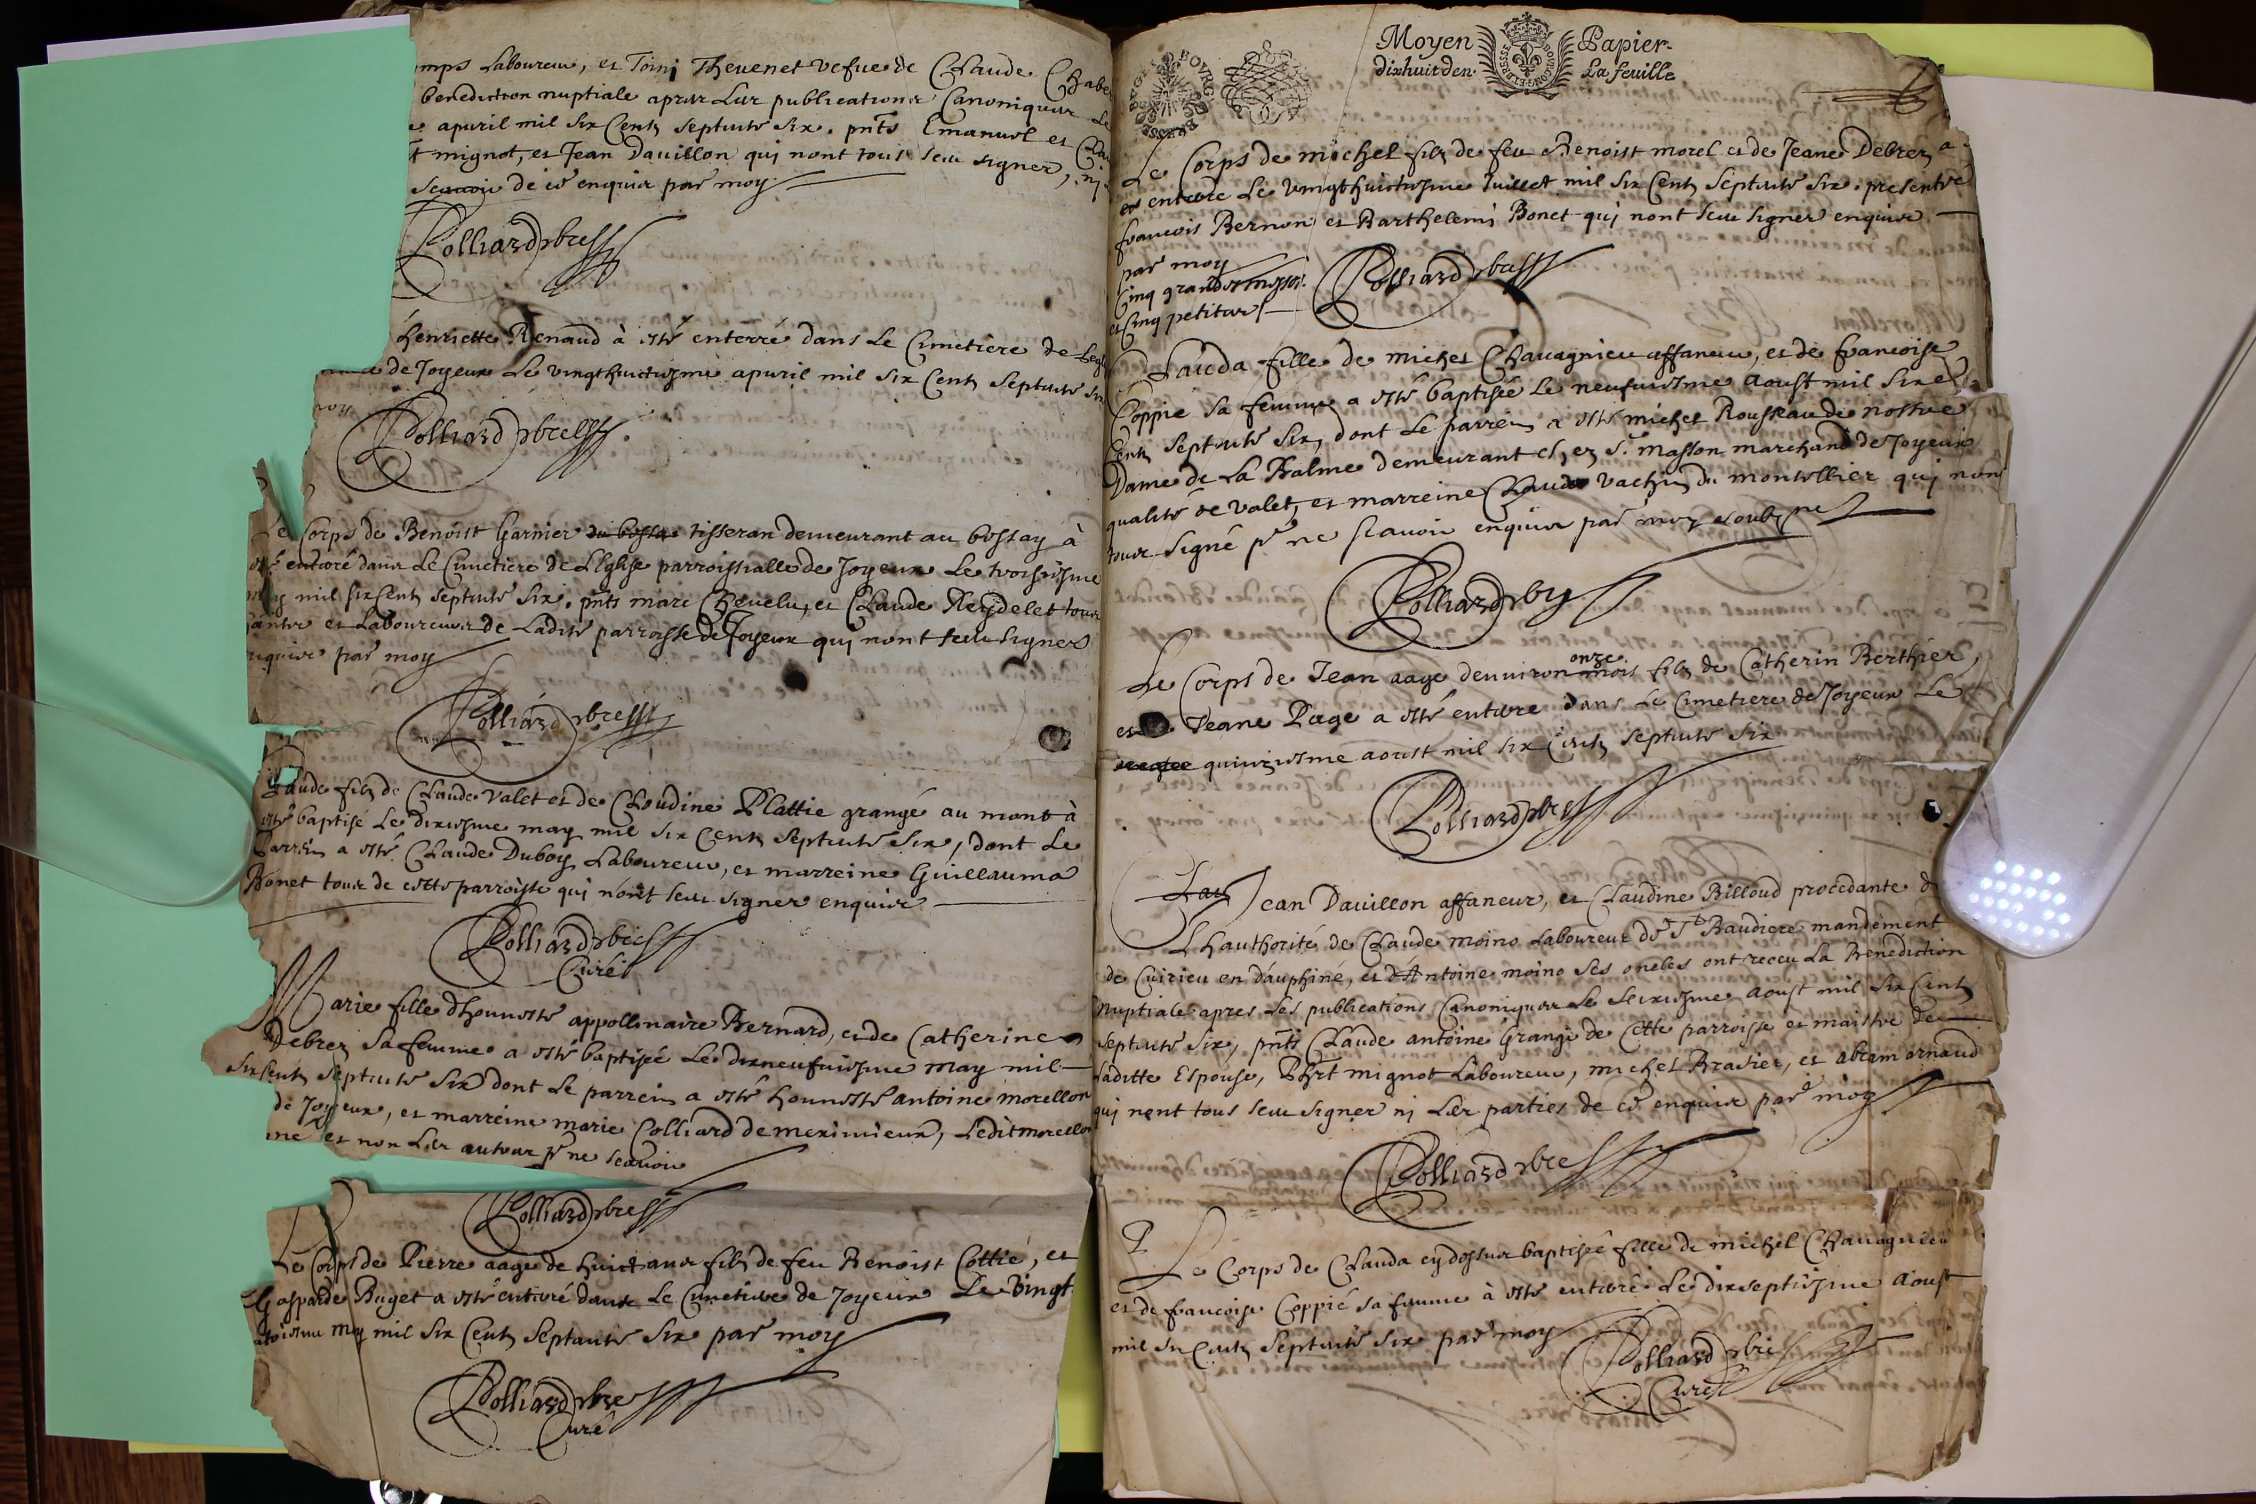 mps Laboureur, et Toini Thevenet vefue de Claude Chabe
benediction nuptiale apres Les publications Canoniques Le
apuril mil six Cents septante six. pnts Emanuel et Clau
mignot, et Jean Dauillon qui nont tous sceu signer, ni
de ce enquis par moy
Colliard pbre
henriette Renaud à esté enterré dans Le Cimetiere de Legl
de Joyeux Le vingthuictiesme apuril mil six Cents septante six
moy
Colliard pbre
Le Corps de Benoist Garnier du bossay tisseran demeurant au bossay à
esté enterré dans Le Cimetiere de L'Eglise parroissialle de Joyeux Le troisiesme
may mil six Cents septante six. pnts marc Chevelu, et Claude Reydelet tous
et Laboureurs de Ladite parroisse de Joyeux qui nont sceu signer
enquis par moy
Colliard pbre
Claude fils de Claude Valet et de Cloudine Plattie grangé au mont à
esté baptisé Le dixiesme may mil six Cents septante six, dont Le
Parrein a esté Claude Duboys Laboureur, et marreine Guillauma
Bonet tous de cette parroisse qui nont sceu signer enquis
Colliard pbre
Curé
Marie fille dhonneste appollinaire Bernard, et de Catherine
Debrez sa femme a esté baptisée Le dixneufuiesme may mil
six Cents septante six dont Le parrein a esté honneste antoine morellon
de Joyeux, et marreine marie Colliard de meximieux, Ledit morellon
et non Les autres pr ne scavoir
Colliard pbre
Le Corps de Pierre aagé de huict ans fils de feu Benoist Cottié, et
Gasparde Buget a esté enterré dans Le Cimetiere de Joyeux Le Vingt
may mil six Cents septante six par moy
Colliard pbre
Curé
Moyen Papier
dixhuit den. La feuille
Le Corps de michel fils de feu Benoist morel et de Jeane Debrez a
esté enterré Le vingthuictiesme Juillet mil six Cents septante six. presents
francois Bernon et Barthelemi Bonet qui nont sceu signer enquis
par moy
Cinq grandes messes
et Cinq petites
Colliard pbre
Clauda fille de michel Chauagnieu affaneur, et de francoise
Coppie sa femme a esté baptisée Le neufuiesme Aoust mil six
Cents septante six, dont Le parrein a esté michel Rousseau de nostre
Dame de La Balme demeurant chez Sr. masson marchand de Joyeux
qualité de valet, et marreine Claude vachin du montellier qui nont
tous signé pr ne scavoir enquis par moy soubsne
Colliard pbre
onze
Le Corps de Jean aagé denuiron mois fils de Catherin Berthier,
et de Jeane Page a esté enterré dans Le Cimetiere de Joyeux Le
quinziesme aoust mil six Cents septante six
Colliard pbre
Jean Dauillon affaneur, et Claudine Billoud procedante de
Lhauthorité de Claude moino Laboureur de St Baudiere mandement
de Cuirieu en dauphiné, et dAntoine moino ses oncles ont receu La Benediction
Nuptiale apres Les publications Canoniques Le seiziesme Aoust mil six Cents
septante six, pnts Claude antoine Grangé de Cette parroisse et maistre de
Laditte Espouse, Phrt mignot Laboureur, michel Brasier, et abram arnaud
qui nont tous sceu signer ni Les parties de ce enquis par moy
Colliard pbre
Le Corps de Clauda cydessus baptisée fille de michel Chauagnieu
et de francoise Coppié sa femme à esté enterré Le dixseptiesme Aoust
mil six Cents septante six par moy
Colliard pbre
Curé